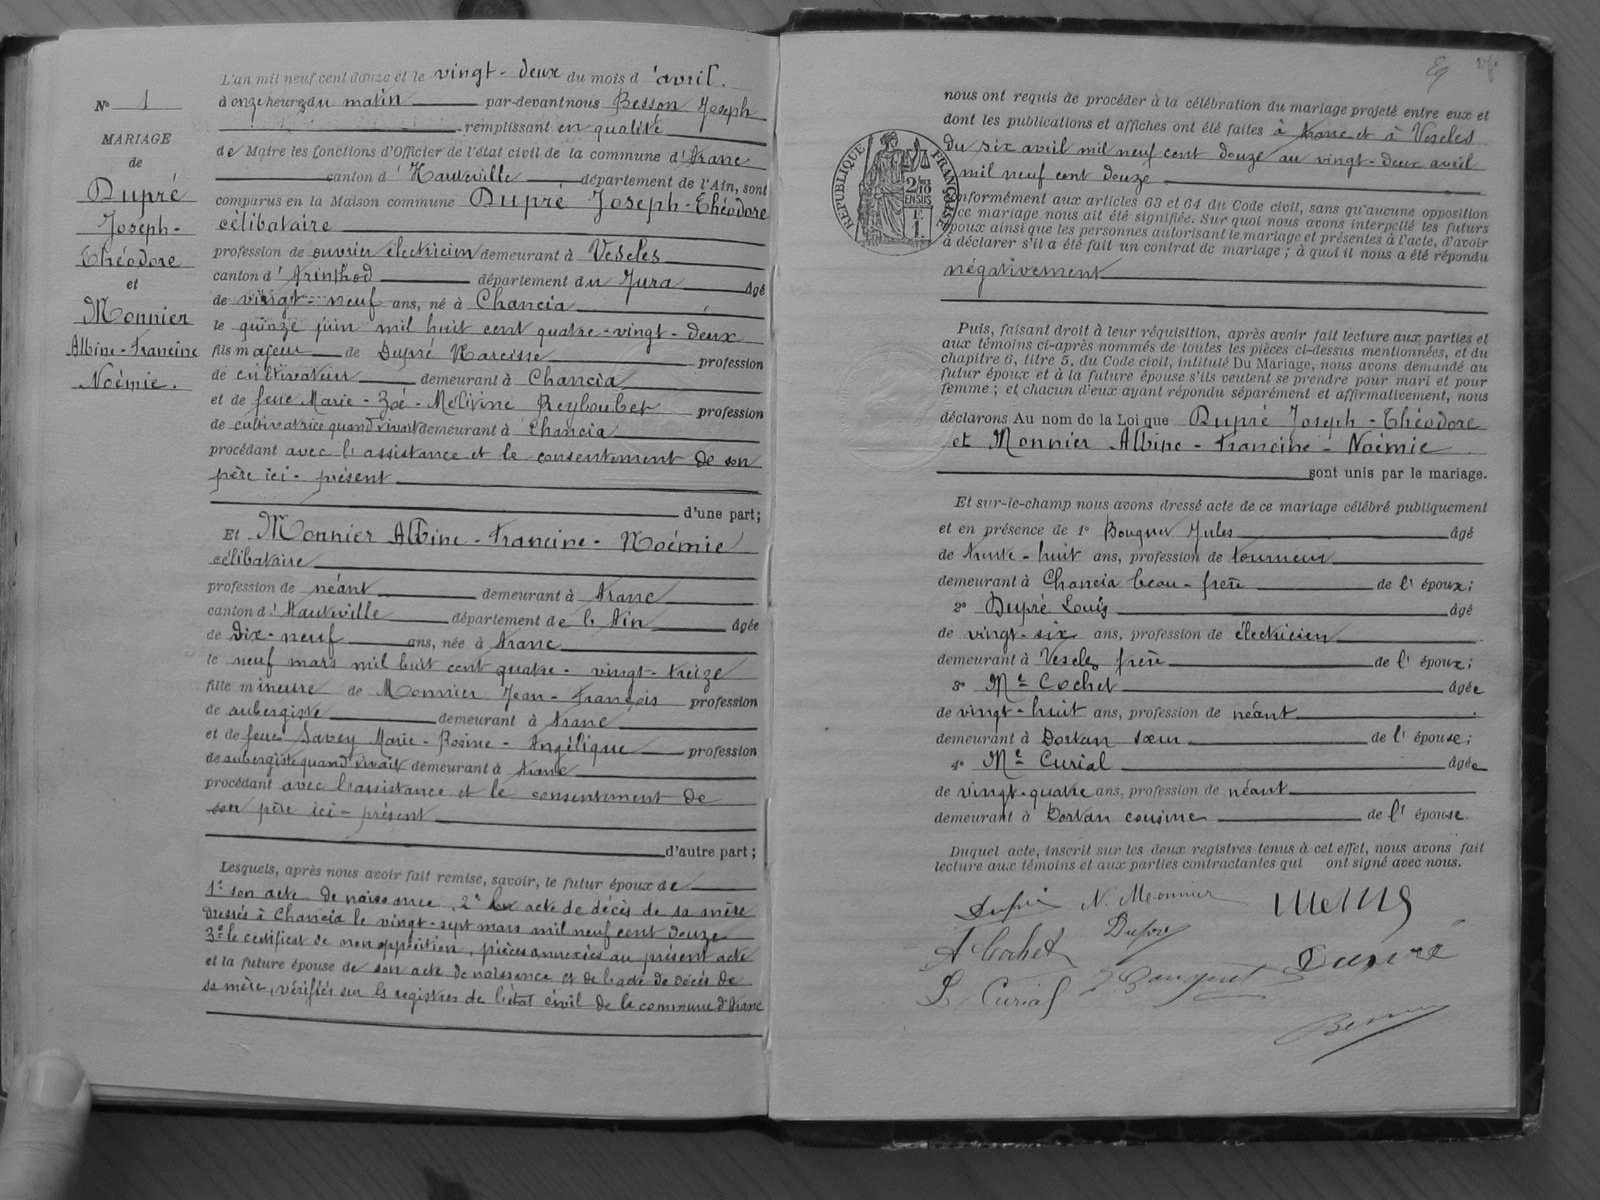 Nº 1
MARIAGE
de
Dupré
Joseph-
Théodore
et
Monnier
Albine-Francine
Noémie.
L'an mil neuf cent douze et le vingt-deux du mois d'avril.
à onze heures du matin par-devant nous Besson Joseph
remplissant en qualité
de Maire les fonctions d'Officier de l'état civil de la commune d'Aranc
canton d'Hauteville département de l'Ain, sont
comparus en la Maison commune Dupré Joseph-Théodore
célibataire
profession de ouvrier électricien demeurant à Vescles
canton d'Arinthod département du Jura Agé
de vingt-neuf ans, né à Chancia
le quinze juin mil huit cent quatre-vingt-deux
fils majeur de Dupré Narcisse profession
de cultivateur demeurant à Chancia
et de feue Marie-Zoé-Mélivine Reyboubet profession
de cultivatrice quand vivait demeurant à Chancia
procédant avec l'assistance et le consentement de son
père ici-présent
d'une part;
Et Monnier Albine-Francine-Noémie
célibataire
profession de néant demeurant à Aranc
canton d'Hauteville département de l'Ain âgée
de dix-neuf ans, née à Aranc
le neuf mars mil huit cent quatre-vingt-treize
fille mineure de Monnier Jean-François profession
de aubergiste demeurant à Aranc
et de feue Savey Marie-Rosine-Angélique profession
de aubergiste quand vivait demeurant à Aranc
procédant avec l'assistance et le consentement de
son père ici-présent
d'autre part;
Lesquels, après nous avoir fait remise, savoir, le futur époux de
1º son acte de naissance, 2º acte de décès de sa mère
dressés à Chancia le vingt-sept mars mil neuf cent douze
3º le certificat de non opposition, pièces annexées au présent acte
et la future épouse de son acte de naissance et de l'acte de décès de
sa mère, vérifiés sur les registres de l'état civil de la commune d'Aranc
nous ont requis de procéder à la célébration du mariage projeté entre eux et
dont les publications et affiches ont été faites à Aranc et à Vescles
du six avril mil neuf cent douze au vingt-deux avril
mil neuf cent douze
REPUBLIQUE FRANÇAISE
conformément aux articles 63 et 64 du Code civil, sans qu'aucune opposition
à ce mariage nous ait été signifiée. Sur quoi nous avons interpellé les futurs
époux ainsi que les personnes autorisant le mariage et présentes à l'acte, d'avoir
à déclarer s'il a été fait un contrat de mariage; à quoi il nous a été répondu
négativement
Puis, faisant droit à leur réquisition, après avoir fait lecture aux parties et
aux témoins ci-après nommés de toutes les pièces ci-dessus mentionnées, et du
chapitre 6, titre 5, du Code civil, intitulé Du Mariage, nous avons demandé au
futur époux et à la future épouse s'ils veulent se prendre pour mari et pour
femme; et chacun d'eux ayant répondu séparément et affirmativement, nous
déclarons Au nom de la Loi que Dupré Joseph-Théodore
et Monnier Albine-Francine-Noémie
sont unis par le mariage.
Et sur-le-champ nous avons dressé acte de ce mariage célébré publiquement
et en présence de 1º Jules âgé
de trente-huit ans, profession de tourneur
demeurant à Chancia beau-frère de l'époux;
2º Dupré Louis âgé
de vingt-six ans, profession de électricien
demeurant à Vescles frère de l'époux;
3º Me Cochet âgée
de vingt-huit ans, profession de néant
demeurant à Dortan sœur de l'épouse;
4º Me Curial âgée
de vingt-quatre ans, profession de néant
demeurant à Dortan cousine de l'épouse.
Duquel acte, inscrit sur les deux registres tenus à cet effet, nous avons fait
lecture aux témoins et aux parties contractantes qui ont signé avec nous.
Dupré N. Monnier
A Cochet Dupré Dupré
Curial